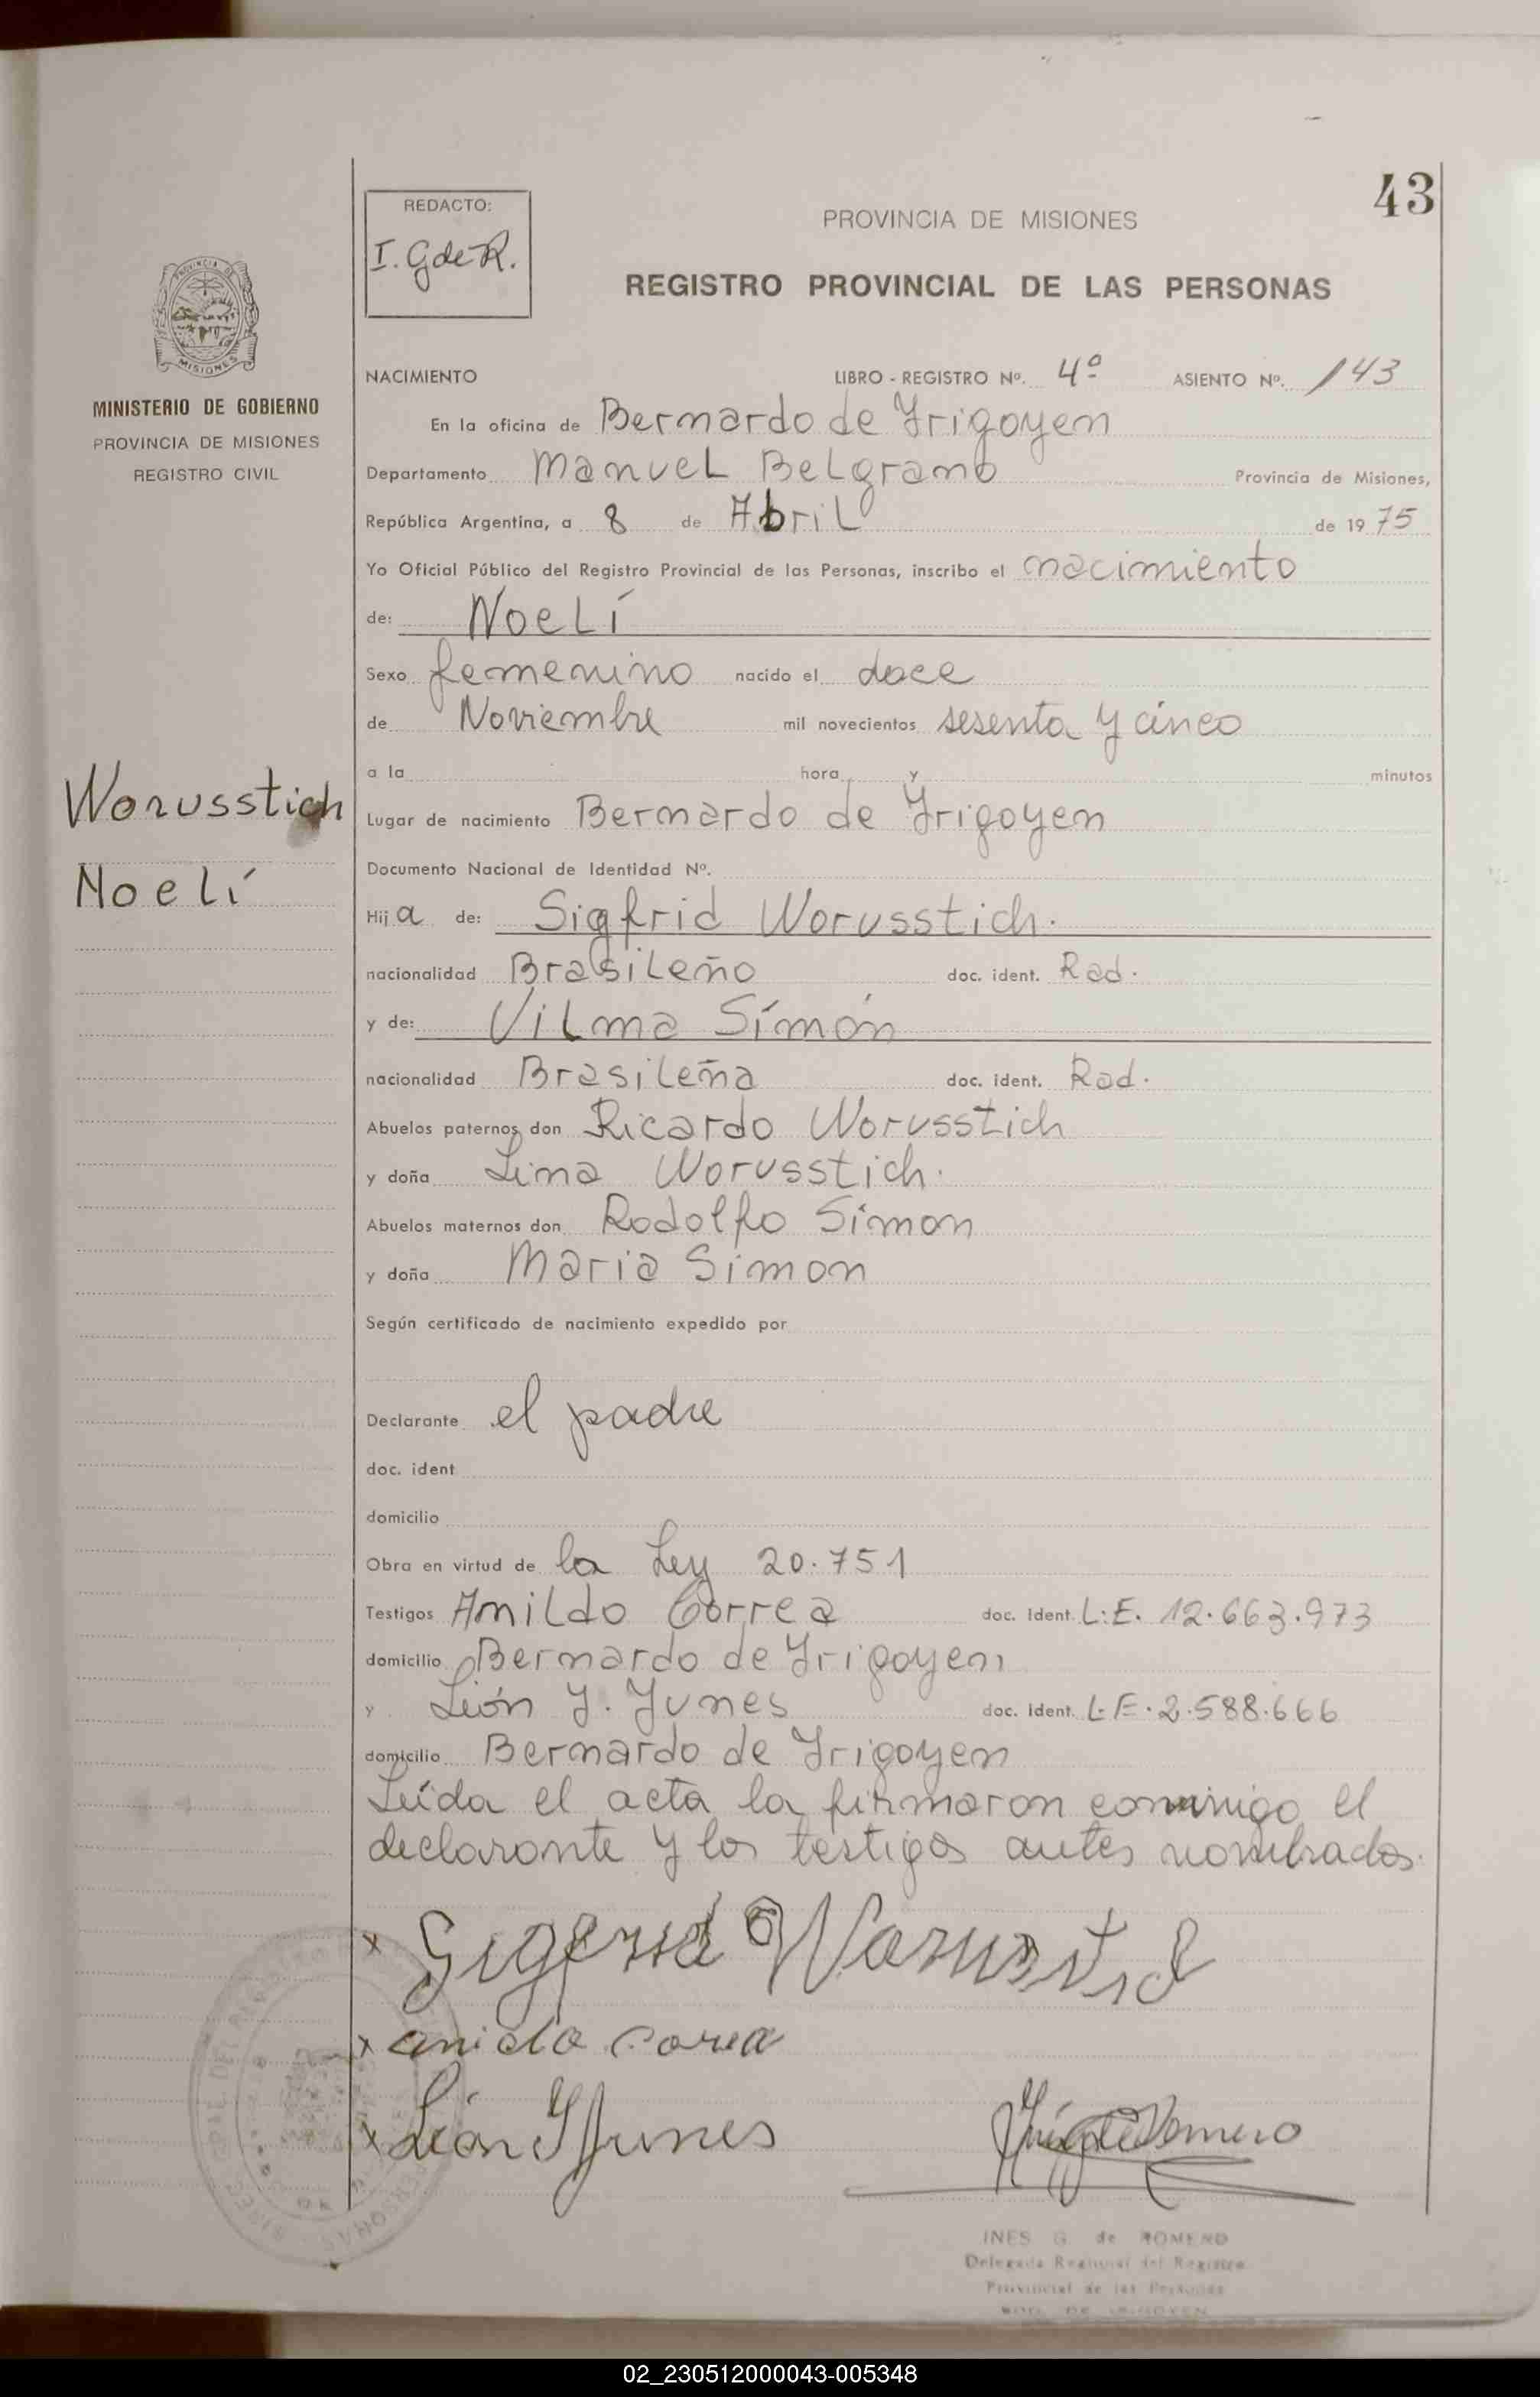 43
REDACTO:
I. G de R.
PROVINCIA DE MISIONES
REGISTRO PROVINCIAL DE LAS PERSONAS
PROVINCIA DE
MISIONES
MINISTERIO DE GOBIERNO
PROVINCIA DE MISIONES
REGISTRO CIVIL
Worusstich
Noelí
NACIMIENTO LIBRO - REGISTRO Nº. 4º ASIENTO Nº. 143
En la oficina de Bernardo de Yrigoyen
Departamento Manuel Belgrano Provincia de Misiones,
República Argentina, a 8 de Abril de 1975
Yo Oficial Público del Registro Provincial de las Personas, inscribo el nacimiento
de: Noelí
Sexo femenino nacido el doce
de Noviembre mil novecientos sesenta y cinco
a la hora y minutos
Lugar de nacimiento Bernardo de Yrigoyen
Documento Nacional de Identidad Nº.
Hija de: Sigfrid Worusstich.
nacionalidad Brasileño doc. ident. Rad.
y de: Vilma Simón
nacionalidad Brasileña doc. ident. Rad.
Abuelos paternos don Ricardo Worusstich
y doña Lina Worusstich.
Abuelos maternos don Rodolfo Simon
y doña Maria Simon
Según certificado de nacimiento expedido por
Declarante el padre
doc. ident
domicilio
Obra en virtud de la Ley 20.751
Testigos Anildo Correa doc. ident. L.E. 12.663.973
domicilio Bernardo de Yrigoyen
y León Y. Yunes doc. ident. L.E. 2.588.666
domicilio Bernardo de Yrigoyen
Leída el acta la firmaron conmigo el
declarante y los testigos antes nombrados.
x
x anildo corea
x León Y Yunes
INES G. de ROMERO
Delegada Regional del Registro
Provincial de las Personas
BDO. DE IRIGOYEN
02_230512000043-005348